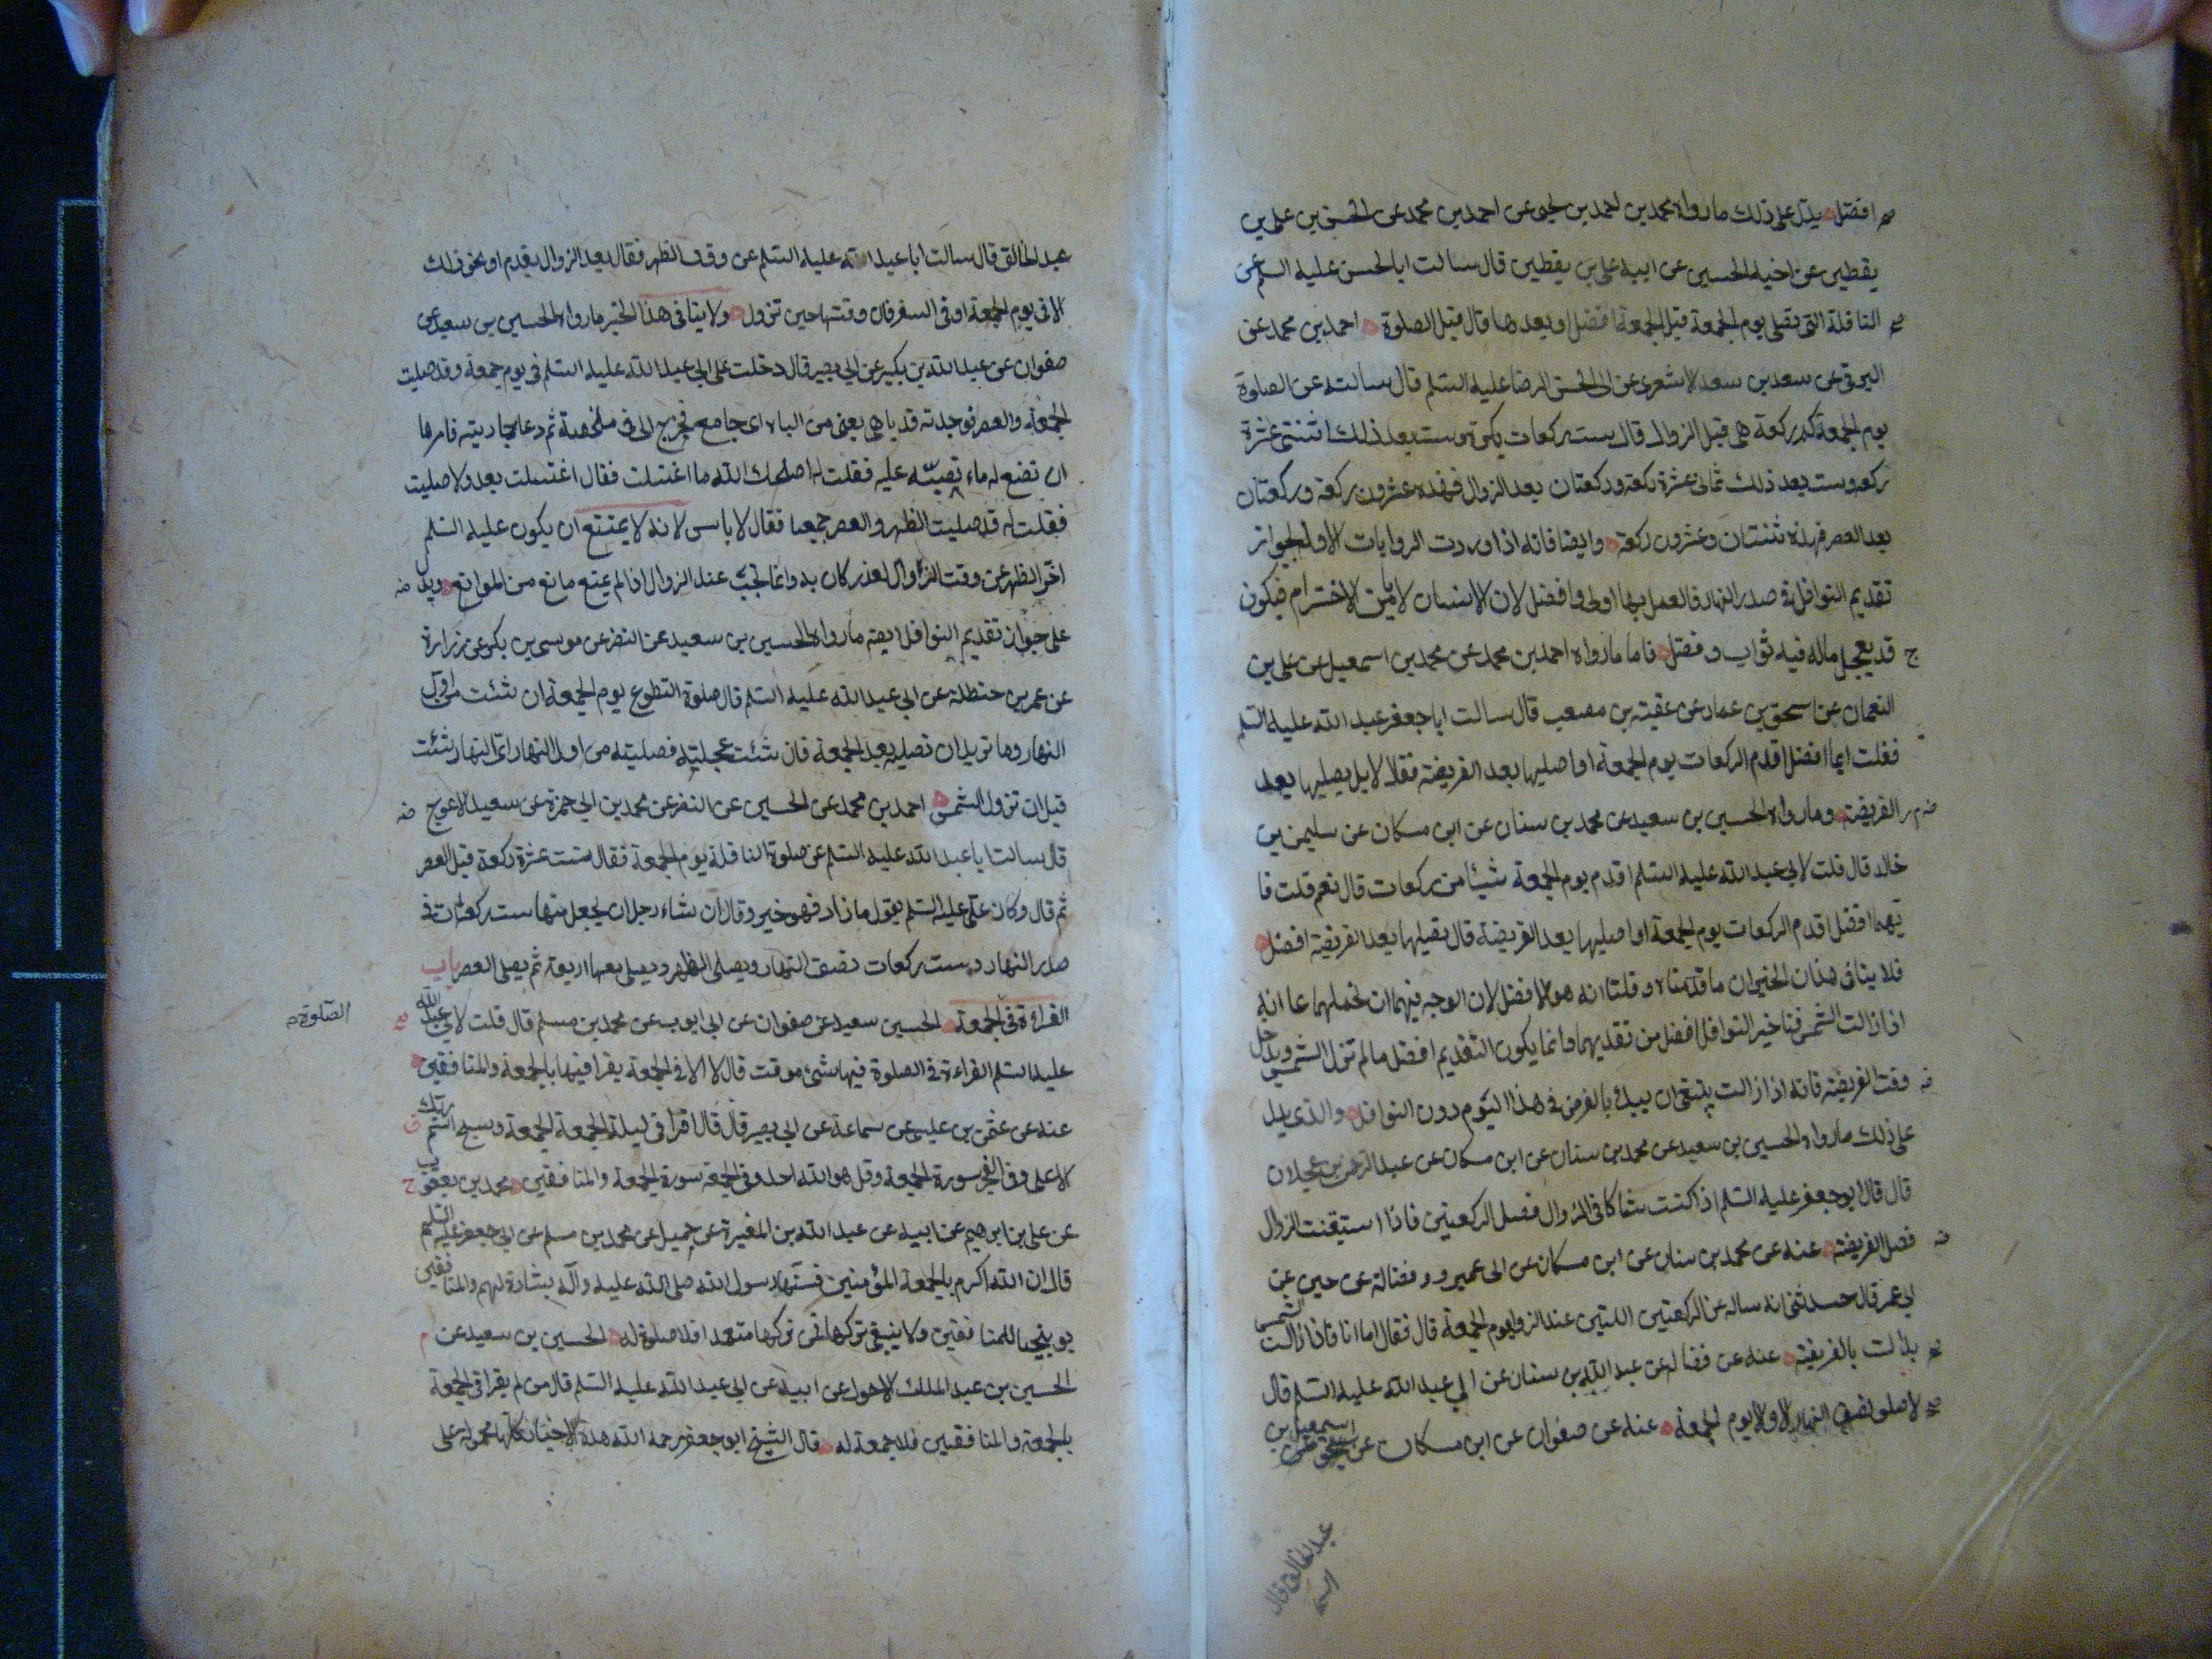 افضل يدل على ذلك ما رواه محمد بن احمد بن يحيى عن احمد بن محمد عن الحسن بن على بن
يقطين عن اخيه الحسين عن ابيه على بن يقطين قال سالت ابا الحسن عليه السلم عن
النافلة التى تصلى يوم الجمعة قبل الجمعة افضل او بعدها قال قبل الصلوة احمد بن محمد عن
البرقى عن سعد بن سعد الاشعرى عن ابى الحسن الرضا عليه السلم قال سالته عن الصلوة
يوم الجمعة كم ركعة هى قبل الزوال قال ست ركعات بكرة وست بعد ذلك اثنتى عشرة
ركعه وست بعد ذلك ثمانى عشرة ركعة وركعتان بعد الزوال فهذه عشرون ركعة وركعتان
بعد العصر فهذه ثنتان وعشرون ركعة وايضا فانه اذا وردت الروايات الاولة بجواز
تقديم النوافل فى صدر النهار فالعمل بها اولى وافضل لان الانسان لا يأمن الاخترام فيكون
قد يعجل ماله فيه ثواب وفضل فاما ما رواه احمد بن محمد عن محمد بن اسمعيل عن على بن
النعمان عن اسحق بن عمار عن عقبة بن مصعب قال سالت ابا جعفر عبد الله عليه السلم
فقلت ايما افضل اقدم الركعات يوم الجمعة او اصليها بعد الفريضة فقال لا بل يصليها بعد
الفريضة وما رواه الحسين بن سعيد عن محمد بن سنان عن ابن مسكان عن سليمن بن
خالد قال قلت لابى عبد الله عليه السلم اقدم يوم الجمعة شيئا من ركعات قال نعم قلت فا
يهما افضل اقدم الركعات يوم الجمعة او اصليها بعد الفريضة قال تصليها بعد الفريضة افضل
فلا ينافى هذان الخبران ما قدمناه وقلنا انه هو الافضل لان الوجه فيهما ان نحملهما عا انه
اذا زالت الشمس فتاخير النوافل افضل من تقديمها وانما يكون التقديم افضل ما لم تزل الشمس ويدخل
وقت الفريضة فانه اذا زالت ينبغى ان يبدأ بالفرض فى هذا اليوم دون النوافل والذى يدل
على ذلك ما رواه الحسين بن سعيد عن محمد بن سنان عن ابن مسكان عن عبد الرحمن بن عجلان
قال قال ابو جعفر عليه السلم اذا كنت شاكا فى الزوال فصل الركعتين فاذا استيقنت الزوال
فصل الفريضة عنه عن محمد بن سنان عن ابن مسكان عن ابى عمير وفضالة عن حسين عن
ابى عمر قال حدثنى انه ساله عن الركعتين اللتين عند الزوال يوم الجمعة قال فقال اما انا فاذا زالت الشمس
بدات بالفريضة عنه عن فضالة عن عبد الله بن سنان عن ابى عبد الله عليه السلم قال
لا صلوة نصف النهار الا يوم الجمعة عنه عن صفوان عن ابن مسكان عن اسمعيل بن
عبد الخالق قال
عبد الخالق قال سالت ابا عبد الله عليه السلم عن وقت الظهر فقال بعد الزوال بقدم او نحو ذلك
الا فى يوم الجمعة او فى السفر فان وقتها حين تزول ولا ينافى هذا الخبر ما رواه الحسين بن سعيد عن
صفوان عن عبد الله بن بكير عن ابى بصير قال دخلت على ابى عبد الله عليه السلم فى يوم جمعة وقد صليت
الجمعة والعصر فوجدته قد باهى يعنى من الباه اى جامع فخرج الى فى ملحفة ثم دعا بجاريته فامرها
ان تضع له ماء تصبّه عليه فقلت له اصلحك الله ما اغتسلت فقال اغتسلت بعد ولا صليت
فقلت له قد صليت الظهر والعصر جميعا فقال لا باس لانه لا يمتنع ان يكون عليه السلم
اخّر الظهر عن وقت الزوال لعذر كان به وانما يجب عند الزوال اذا لم يمنع مانع من الموانع ويدل
على جواز تقديم النوافل ايضا ما رواه الحسين بن سعيد عن النضر عن موسى بن بكر عن زرارة
عن عمر بن حنظلة عن ابى عبد الله عليه السلم قال صلوة التطوع يوم الجمعة ان شئت من اول
النهار وما تريد ان تصليه بعد الجمعة فان شئت عجلته فصليته من اول النهار اى النهار شئت
قبل ان تزول الشمس احمد بن محمد عن الحسين عن النضر عن محمد بن ابى حمزة عن سعيد الاعرج
قال سالت ابا عبد الله عليه السلم عن صلوة النافلة يوم الجمعة فقال ست عشرة ركعة قبل العصر
ثم قال وكان على عليه السلم يقول ما زاد فهو خير وقال ان شاء رجل ان يجعل منها ست ركعات فى
صدر النهار وست ركعات نصف النهار ويصلى الظهر ويصلى معها اربعة ثم يصلى العصر باب
القراءة فى الجمعة الحسين سعيد عن صفوان عن ابى ايوب عن محمد بن مسلم قال قلت لابى عبد الله
الصلوة
عليه السلم القراءة فى الصلوة فيها شئ موقت قال لا الا فى الجمعة يقرا فيها بالجمعة والمنافقين
عنه عن عثمن بن عيسى عن سماعة عن ابى بصير قال قال اقرا فى ليلة الجمعة الجمعة وسبح اسم ربك
الاعلى وفى الفجر سورة الجمعة وقل هو الله احد وفى الجمعة سورة الجمعة والمنافقين محمد بن يعقوب
عن على بن ابرهيم عن ابيه عن عبد الله بن المغيرة عن جميل عن محمد بن مسلم عن ابى جعفر عليه السلم
قال ان الله اكرم بالجمعة المؤمنين فسنّها رسول الله صلى الله عليه وآله بشارة لهم والمنافقين
توبيخا للمنافقين ولا ينبغى تركها فمن تركها متعمدا فلا صلوة له الحسين بن سعيد عن
الحسين بن عبد الملك الاحول عن ابيه عن ابى عبد الله عليه السلم قال من لم يقرا فى الجمعة
بالجمعة والمنافقين فلا جمعة له قال الشيخ ابو جعفر رحمه الله هذه الاخبار كلها محمولة على